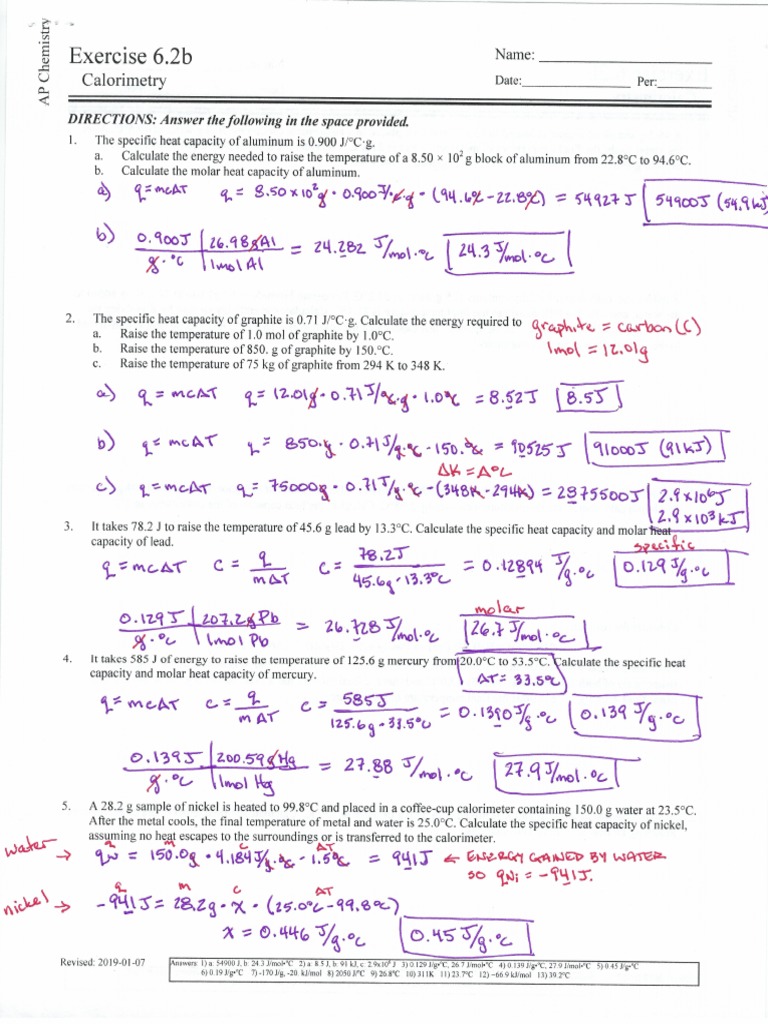 AP Chemistry
Exercise 6.2b
Name: ____________________
Calorimetry
Date:______________ Per:_______
DIRECTIONS: Answer the following in the space provided.
1. The specific heat capacity of aluminum is 0.900 J/°C·g.
a. Calculate the energy needed to raise the temperature of a 8.50 × 10² g block of aluminum from 22.8°C to 94.6°C.
b. Calculate the molar heat capacity of aluminum.
a) q = mcΔT q = 8.50 x 10² g · 0.900 J/°C·g · (94.6°C - 22.8°C) = 54927 J 54900J (54.9 kJ)
b) 0.900J | 26.98g Al
g·°C | 1mol Al = 24.282 J/mol·°C 24.3 J/mol·°C
2. The specific heat capacity of graphite is 0.71 J/°C·g. Calculate the energy required to
graphite = carbon (C)
a. Raise the temperature of 1.0 mol of graphite by 1.0°C.
1mol = 12.01g
b. Raise the temperature of 850. g of graphite by 150.°C.
c. Raise the temperature of 75 kg of graphite from 294 K to 348 K.
a) q = mcΔT q = 12.01g · 0.71 J/°C·g · 1.0°C = 8.52J 8.5J
b) q = mcΔT q = 850.g · 0.71 J/g·°C · 150.°C = 90525 J 91000J (91kJ)
ΔK = Δ°C
c) q = mcΔT q = 75000g · 0.71 J/g·°C · (348K - 294K) = 2875500J 2.9x10⁶J
2.9x10³kJ
3. It takes 78.2 J to raise the temperature of 45.6 g lead by 13.3°C. Calculate the specific heat capacity and molar heat
capacity of lead.
specific
q = mcΔT c = q/mΔT c = 78.2J/45.6g·13.3°C = 0.12894 J/g·°C 0.129 J/g·°C
molar
0.129J | 207.2g Pb
g·°C | 1mol Pb = 26.728 J/mol·°C 26.7 J/mol·°C
4. It takes 585 J of energy to raise the temperature of 125.6 g mercury from 20.0°C to 53.5°C. Calculate the specific heat
capacity and molar heat capacity of mercury.
ΔT = 33.5°C
q = mcΔT c = q/mΔT c = 585J/125.6g·33.5°C = 0.1390 J/g·°C 0.139 J/g·°C
0.139J | 200.59g Hg
g·°C | 1mol Hg = 27.88 J/mol·°C 27.9 J/mol·°C
5. A 28.2 g sample of nickel is heated to 99.8°C and placed in a coffee-cup calorimeter containing 150.0 g water at 23.5°C.
After the metal cools, the final temperature of metal and water is 25.0°C. Calculate the specific heat capacity of nickel,
assuming no heat escapes to the surroundings or is transferred to the calorimeter.
q m c ΔT
water → qw = 150.0g · 4.184 J/g·°C · 1.5°C = 941J ← ENERGY GAINED BY WATER
so qNi = -941J.
q m c ΔT
nickel → -941J = 28.2g · x · (25.0°C - 99.8°C)
x = 0.446 J/g·°C 0.45 J/g·°C
Revised: 2019-01-07
Answers: 1) a: 54900 J, b: 24.3 J/mol•°C 2) a: 8.5 J, b: 91 kJ, c: 2.9x10⁶ J 3) 0.129 J/g•°C, 26.7 J/mol•°C 4) 0.139 J/g•°C, 27.9 J/mol•°C 5) 0.45 J/g•°C
6) 0.19 J/g•°C 7) -170 J/g, -20. kJ/mol 8) 2050 J/°C 9) 26.8°C 10) 311K 11) 23.7°C 12) −66.9 kJ/mol 13) 39.2°C